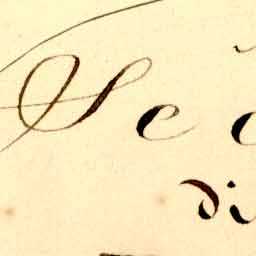 Sec
di